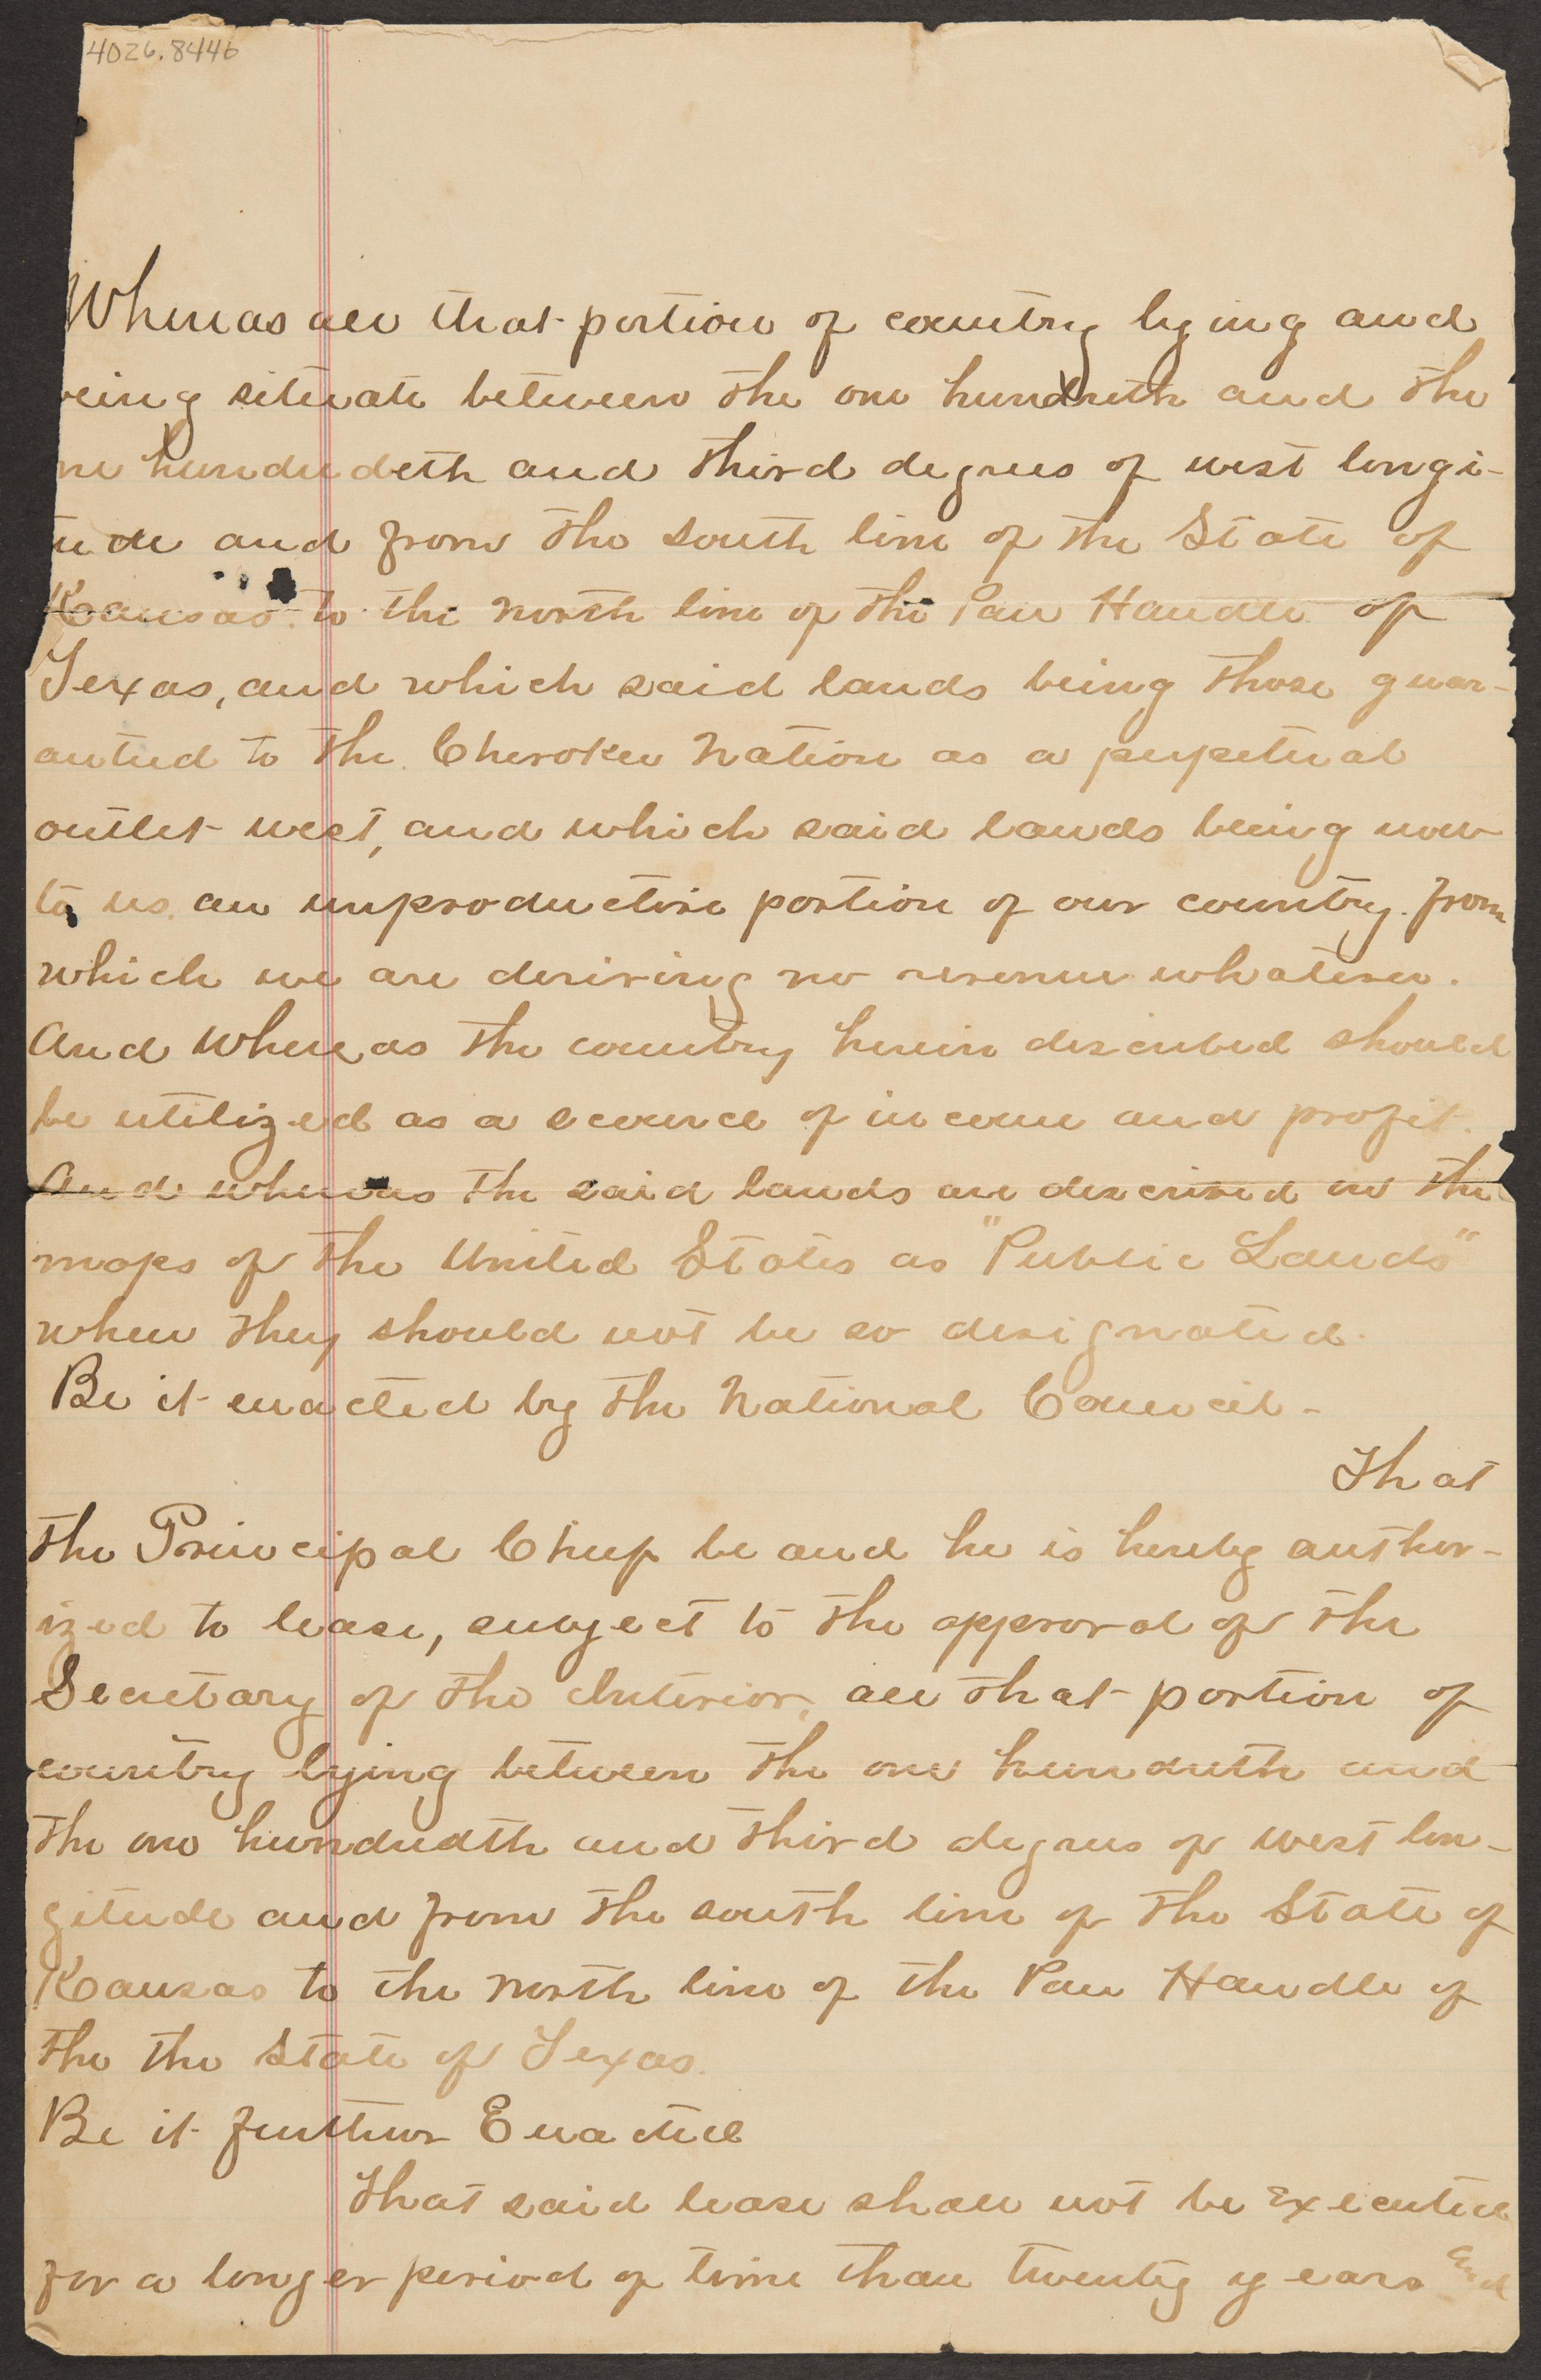 4026.8446
Whereas all that portion of country lying and
being situate between the one hundreth and the
one hundredeth and third degrees of west longi-
tude and from the south line of the State of
Kansas to the north line of the Pan Handle of
Texas, and which said lands being those guar-
anteed to the Cherokee Nation as a perpetual
outlet west, and which said lands being now
to us an unproductive portion of our country from
which we are deriving no revenue whatever.
And Whereas the country herein described should
be utilized as a scource of income and profit.
And whereas the said lands are described in the
maps of the United States as "Public Lands"
when they should not be so designated.
Be it enacted by the National Council -
That
the Principal Chief be and he is hereby author-
ized to lease, subject to the approval of the
Secretary of the Interior, all that portion of
country lying between the one hundreth and
the one hundredth and third degrees of west lon-
gitude and from the south line of the State of
Kansas to the north line of the Pan Handle of
the the State of Texas.
Be it further Enacted
That said lease shall not be Executed
for a longer period of time than twenty years and